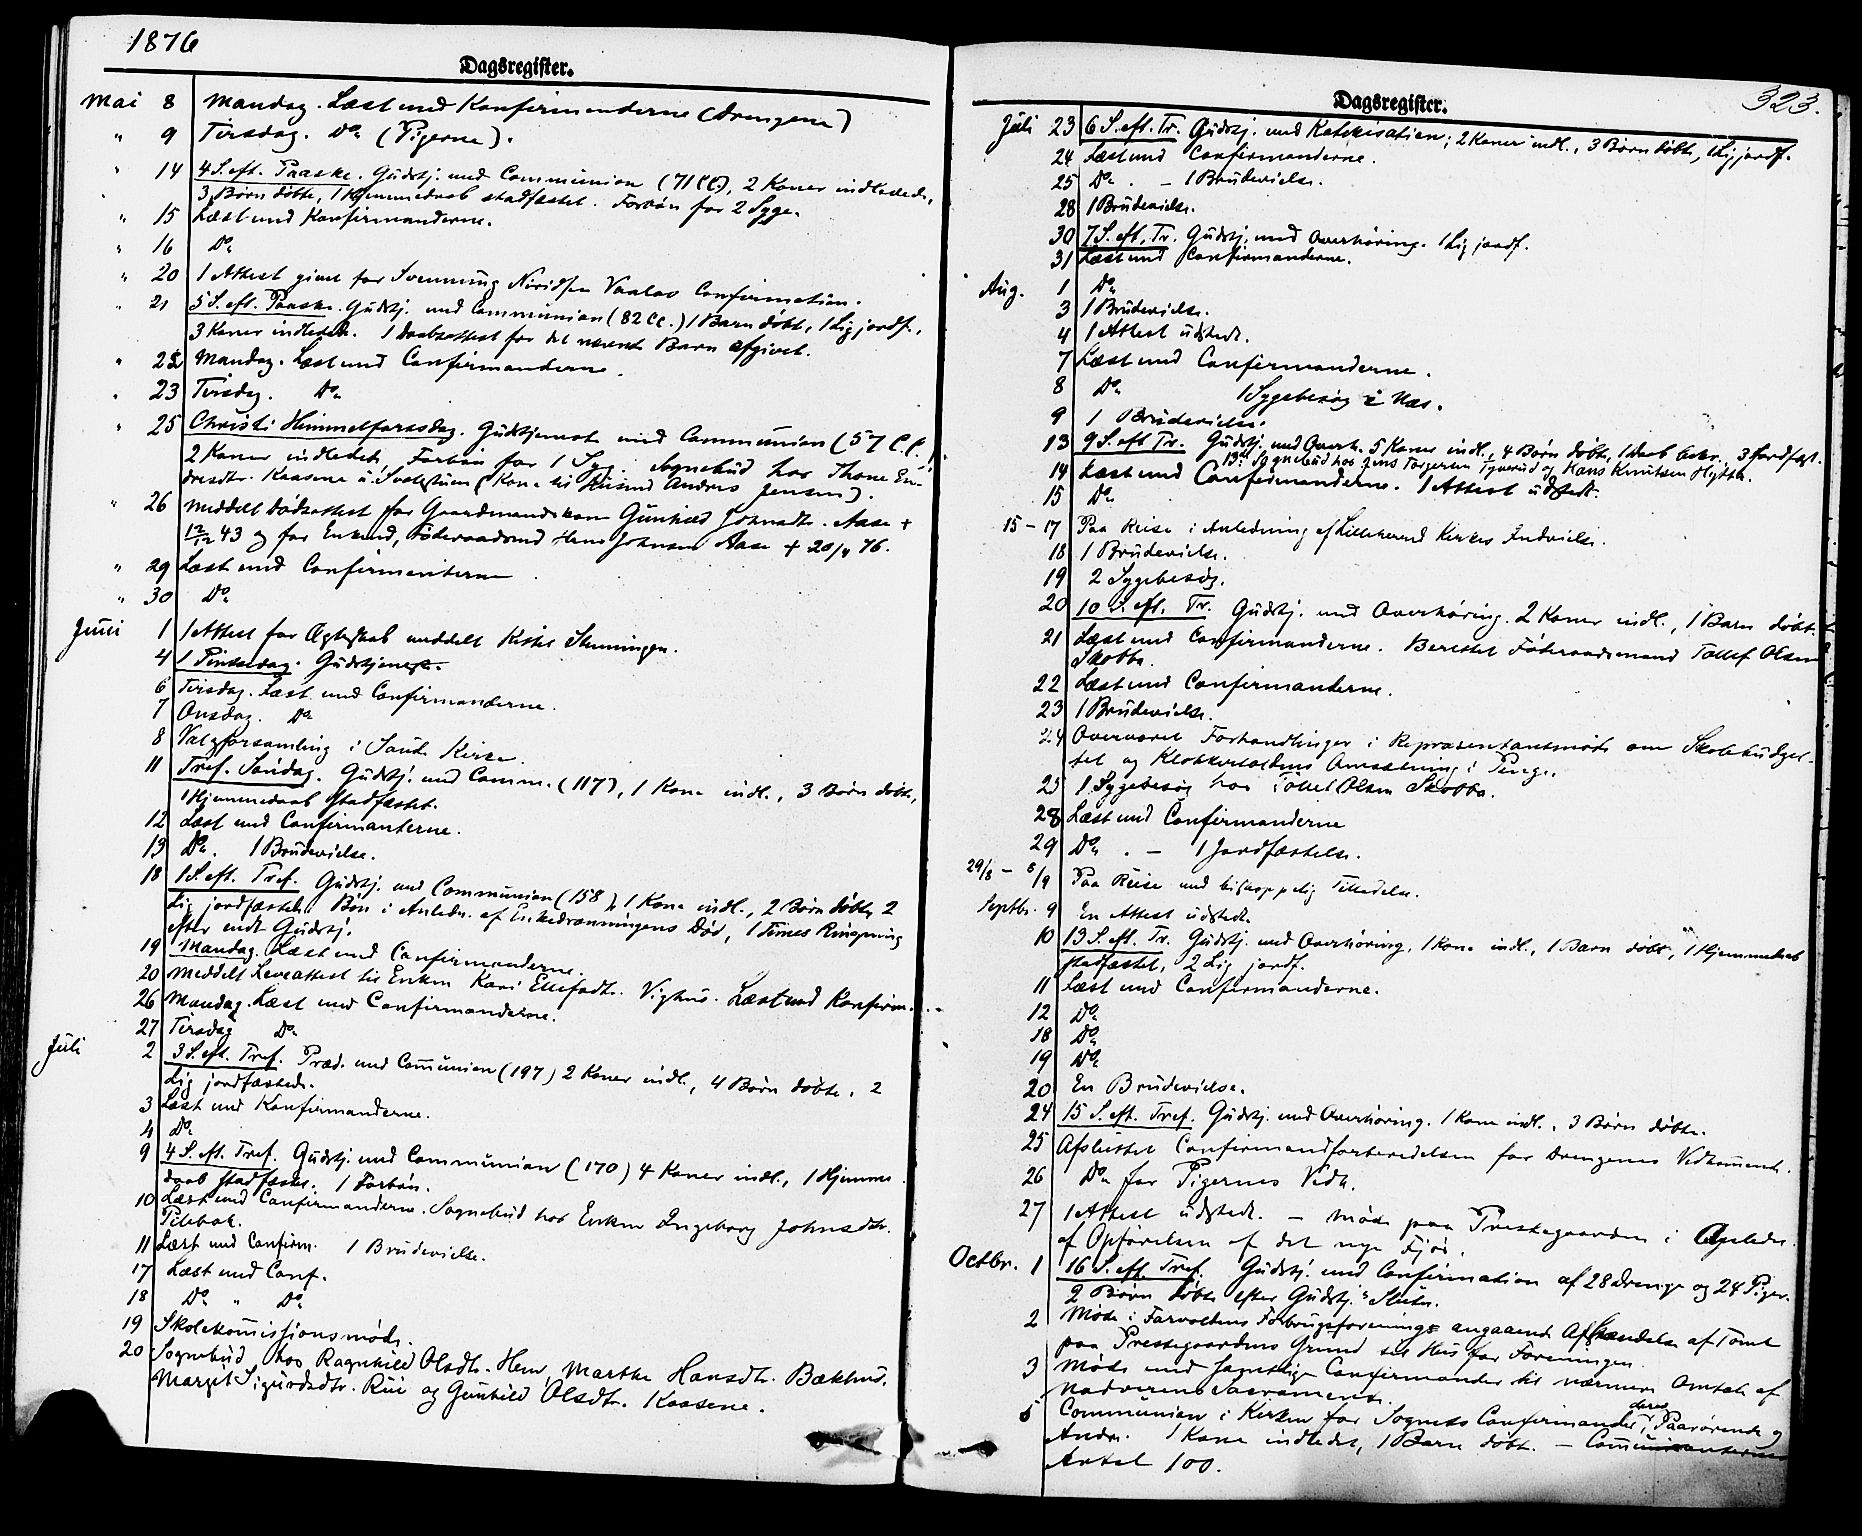 1876
Dagsregister.
Mai 8 Mandag. Læst med Konfirmanderne (Drengene)
" 9 Tirsdag. Do (Pigerne).
" 14 4 S. eft. Paaske. Gudstj. med Communion (71 CC.), 2 Koner indledede,
3 Børn døbte, 1 Hjemmedaab stadfæstet. Forbøn for 2 Syge.
" 15 Læst med Konfirmanderne.
" 16 Do
" 20 1 Attest givet for Svennung Confirmation.
" 21 5 S. eft. Paaske. Gudstj. med Communion (82 CC.) 1 Barn døbt, 1 Lig jordf.,
3 Koner indledede. 1 Daabsattest for det nævnte Barn afgivet.
" 22 Mandag. Læst med Confirmanderne.
" 23 Tirsdag. Do
" 25 Christi Himmelfartsdag. Gudstjeneste med Communion (57 CC.)
2 Koner indledet, Forbøn for 1 Syg. Sognebud hos Thone En-
dresdtr. Kaasene u. (Kone til Husmd Anders Jensen).
" 26 Meddelt Dødsattest for Gaardmandskone Gunhild Johnsdtr. Aase +
12/12 43 og for Enkemd, Føderaadsmd Hans Johnsen Aase + 20/4 76.
" 29 Læst med Confirmanterne.
" 30 Do
Juni 1 1 Attest for Ægteskab meddelt Kittel
4 1 Pintsedag. Gudstjeneste.
6 Tirsdag. Læst med Confirmanderne.
7 Onsdag. Do
8 Valgforsamling i Saude Kirke.
11 Tref. Søndag. Gudstj. med Comm. (117), 1 Kone indl., 3 Børn døbte,
1 Hjemmedaab stadfæstet.
12 Læst med Confirmanterne.
13 Do. 1 Brudevielse.
18 1 S. eft. Tref. Gudstj. med Communion (158), 1 Kone indl., 2 Børn døbte, 2
Lig jordfæstede. Bøn i Anledn. af Enkedronningens Død, 1 Times Ringning
efter endt Gudstj.
19 Mandag. Læst med Confirmanderne.
20 Meddelt Leveattest til Enken Kari Ellefsdtr. Vighus. Læst med Konfirm.
26 Mandag. Læst med Confirmanderne.
27 Tirsdag Do
Juli 2 3 S. eft. Tref. Præd. med Communion (197) 2 Koner indl., 4 Børn døbte, 2
Lig jordfæstede.
3 Læst med Konfirmanderne.
4 Do
9 4 S. eft. Tref. Gudstj. med Communion (170) 4 Koner indl., 1 Hjemme
daab stadfæstet. 1 Forbøn.
10 Læst med Confirmanderne. Sognebud hos Enken Ingeborg Johnsdtr.
Pilebak.
11 Læst med Confirm. 1 Brudevielse.
17 Læst med Conf.
18 Do " Do
19 Skolekommissionsmøde.
20 Sognebud hos Ragnhild Olsdtr. Hem, Marthe Hansdtr. Bækhus.
Margit Sigurdsdtr. Rui og Gunhild Olsdtr. Kaasene.
Dagsregister.
323.
Juli 23 6 S. eft. Tr. Gudstj. med Katekisation; 2 Koner indl., 3 Børn døbte, 1 Lig jordf.
24 Læst med Confirmanderne.
25 Do. – 1 Brudevielse.
28 1 Brudevielse.
30 7 S. eft. Tr. Gudstj. med Overhøring. 1 Lig jordf.
31 Læst med Confirmanderne.
Aug. 1 Do
3 1 Brudevielse.
4 1 Attest udstedt.
7 Læst med Confirmanderne.
8 Do 1 Sygebesøg i Næs.
9 1 Brudevielse.
13 9 S. eft Tr. Gudstj. med Overh. 5 Koner indl., 4 Børn døbte, 1 Daab bekr., 3 Jordfæst.
13de Sognebud hos Jens Torgersen og Hans Knutsen Hytta.
14 Læst med Confirmanderne. 1 Attest udstedt.
15 Do
15 – 17 Paa Reise i Anledning af Lilleherred Kirkes Indvielse.
18 1 Brudevielse.
19 2 Sygebesøg.
20 10 S. eft. Tr. Gudstj. med Overhøring. 2 Koner indl., 1 Barn døbt.
21 Læst med Confirmanderne. Berettet Føderaadsmand Tollef Olsen
Skobba.
22 Læst med Confirmanderne.
23 1 Brudevielse.
24 Overværet Forhandlinger i Repræsentantmøde om Skolebudget-
tet og Klokkertoldens Omsætning i Penge.
25 1 Sygebesøg hos Tollef Olsen Skobba.
28 Læst med Confirmanderne
29 Do. – 1 Jordfæstelse.
29/8 – 8/9 Paa Reise med biskoppelig Tilladelse.
Septbr. 9 En Attest udstedt.
10 13 S. eft. Tr. Gudstj. med Overhøring, 1 Kone indl., 1 Barn døbt, 1 Hjemmedaab
stadfæstet, 2 Lig jordf.
11 Læst med Confirmanderne.
12 Do
18 Do
19 Do
20 En Brudevielse.
24 15 S. eft. Tref. Gudstj. med Overhøring. 1 Kone indl., 3 Børn døbte.
25 Afsluttet Confirmandforberedelsen for Drengenes Vedkommende.
26 Do for Pigernes Vedk.
27 1 Attest udstedt. – Møde paa Prestegaarden i Anledn.
af Opførelsen af det nye Fjøs.
Octbr. 1 16 S. eft. Tref. Gudstj. med Confirmation af 28 Drenge og 24 Piger.
2 Børn døbte efter Gudstj.s Slutn.
2 Møde i Farvoldens Forbrugsforening angaaende Afhændelse af Tomt
paa Prestegaardens Grund til Hus for Foreningen.
3 Møde med samtlige Confirmander til nærmere Omtale af
Nadverens Sacrament.
5 Communion i Kirken for Sognets Confirmander, deres Paarørende og
Andre. 1 Kone indledet, 1 Barn døbt. – Communicanternes
Antal 100.